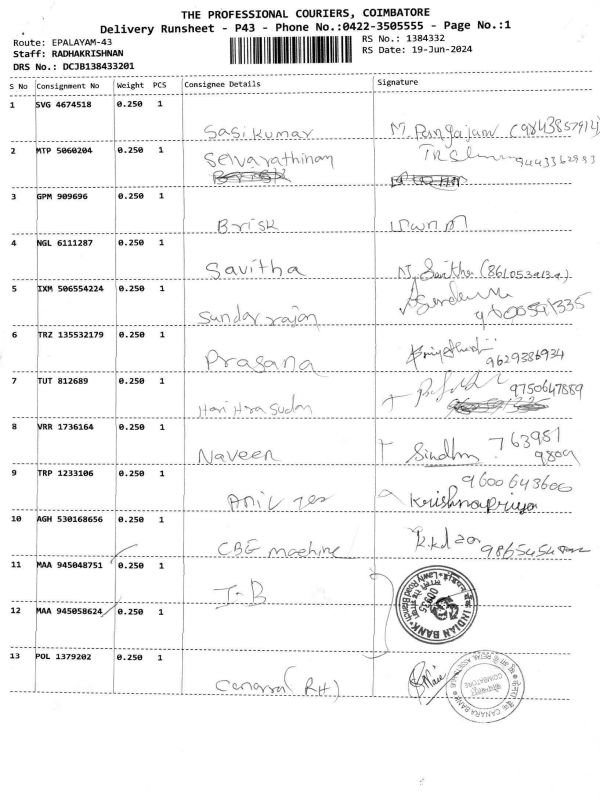 THE PROFESSIONAL COURIERS, COIMBATORE
Delivery Runsheet - P43 - Phone No.:0422-3505555 - Page No.:1
Route: EPALAYAM-43
RS No.: 1384332
Staff: RADHAKRISHNAN
RS Date: 19-Jun-2024
DRS No.: DCJB138433201
S No Consignment No Weight PCS Consignee Details Signature
1 SVG 4674518 0.250 1
Sasikumar M. Pangajam (9843857912)
2 MTP 5060204 0.250 1
Selvarathinam 9443362993
3 GPM 909696 0.250 1
Brisk
4 NGL 6111287 0.250 1
Savitha
5 IXM 506554224 0.250 1
Sundarrajan
6 TRZ 135532179 0.250 1
Prasana 9629386934
7 TUT 812689 0.250 1
9750647889
8 VRR 1736164 0.250 1
Naveen Sindhu 763981
9809
9 TRP 1233106 0.250 1
9600643606
Krishnapriya
10 AGH 530168656 0.250 1
CBE machine
11 MAA 945048751 0.250 1
I-B
INDIAN BANK
Lawly Road Branch
00935
12 MAA 945058624 0.250 1
13 POL 1379202 0.250 1
Canara (RH)
CANARA BANK
COIMBATORE